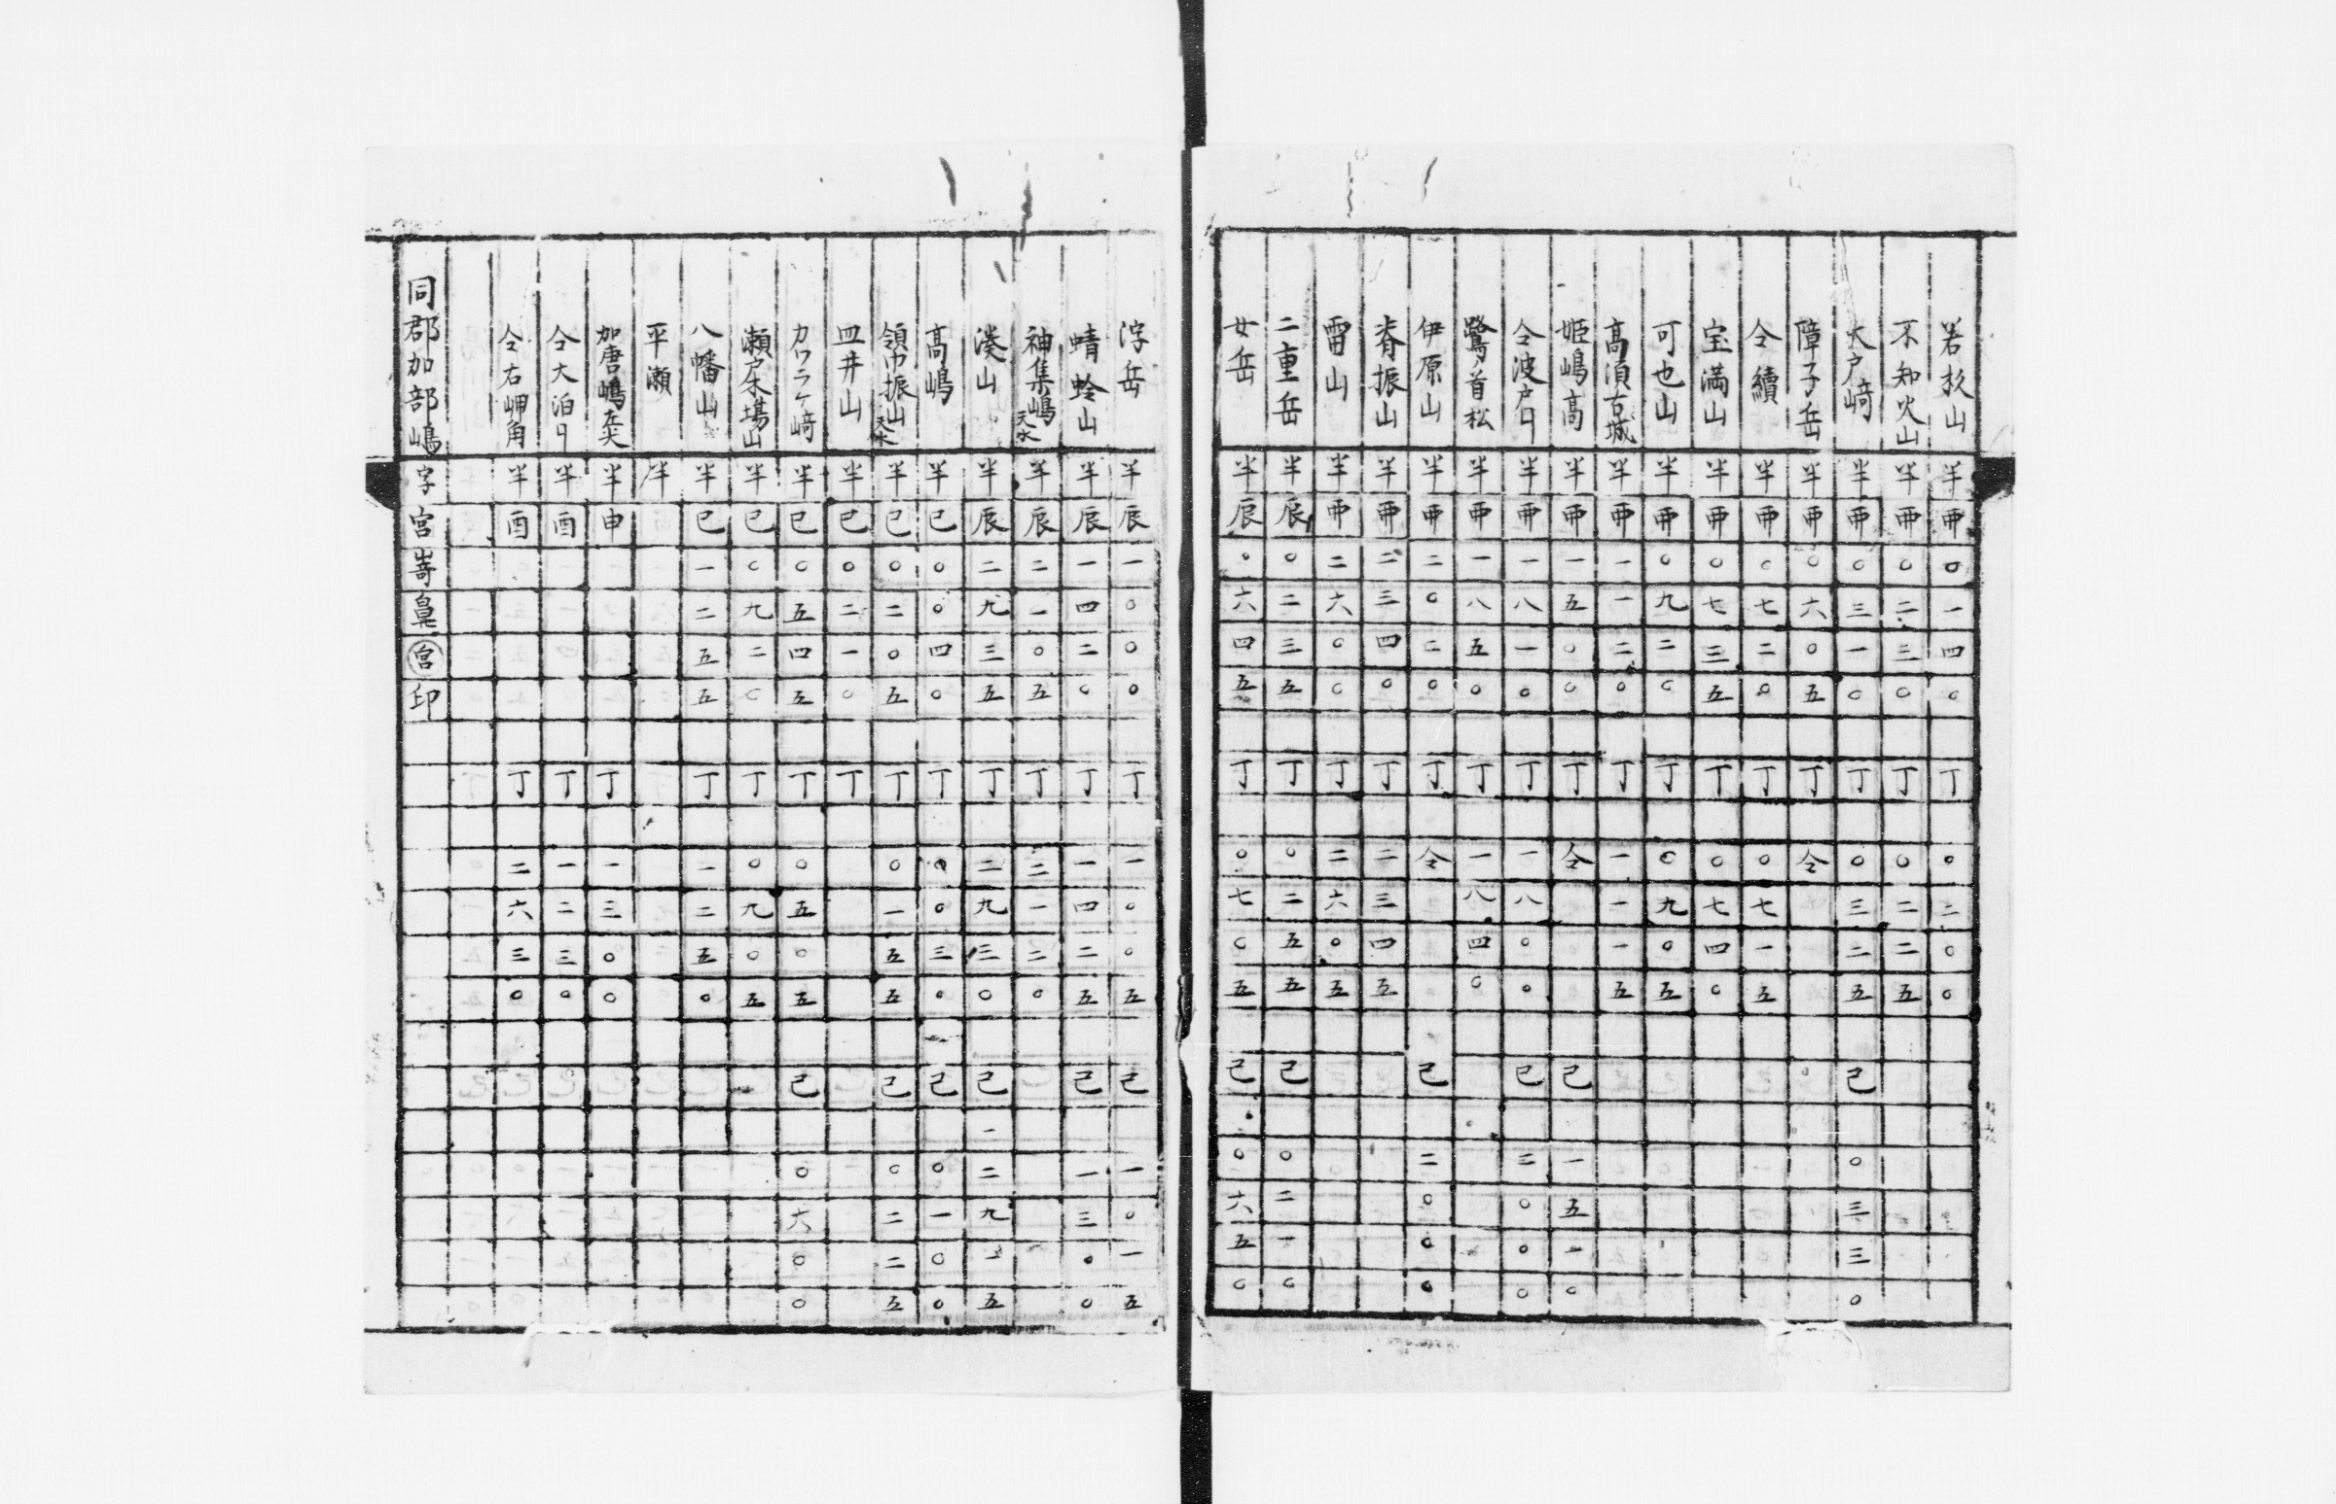 若杦山 半丣〇一四〇 丁〇二〇〇
不知火山 半丣〇二三〇 丁〇二二五
大戸﨑 半丣〇三一〇 丁〇三二五 己〇三三〇
障子岳 半丣〇六〇五 丁仝
仝續 半丣〇七二〇 丁〇七一五
宝満山 半丣〇七三五 丁〇七四〇
可也山 半丣〇九二〇 丁〇九〇五
高須古城 半丣一一二〇 丁一一一五
姫嶋高 半丣一五〇〇 丁仝 己一五一〇
仝波戸口 半丣一八一〇 丁一八〇〇 己三〇〇〇
鷺ノ首松 半丣一八五〇 丁一八四〇
伊原山 半丣二〇二〇 丁仝 己二〇〇〇
脊振山 半丣二三四〇 丁二三四五
雷山 半丣二六〇〇 丁二六〇五
二重岳 半辰〇二三五 丁〇二五五 己〇二一〇
女岳 半辰〇六四五 丁〇七〇五 己〇六五〇
浮岳 半辰一〇〇〇 丁一〇〇五 己一〇一五
蜻蛉山 半辰一四二〇 丁一四二五 己一三〇〇
神集嶋天水 半辰二一〇五 丁二一二〇
湊山 半辰二九三五 丁二九三〇 己二九一五
高嶋 半巳〇〇四〇 丁〇〇三〇 己〇一〇〇
領巾振山 半巳〇二〇五 丁〇一五五 己〇二二五
皿井山 半巳〇二一〇 丁
カワラケ﨑 半巳〇五四五 丁〇五〇五 己〇六〇〇
瀬戸木場山 半巳〇九二〇 丁〇九〇五
八幡山 半巳一二五五 丁一二五〇
平瀬 半
加唐嶋左尖 半申 丁一三〇〇
仝大泊口 半酉 丁一二三〇
仝右岬角 半酉 丁二六三〇
同郡加部嶋字宮嵜鼻宮印